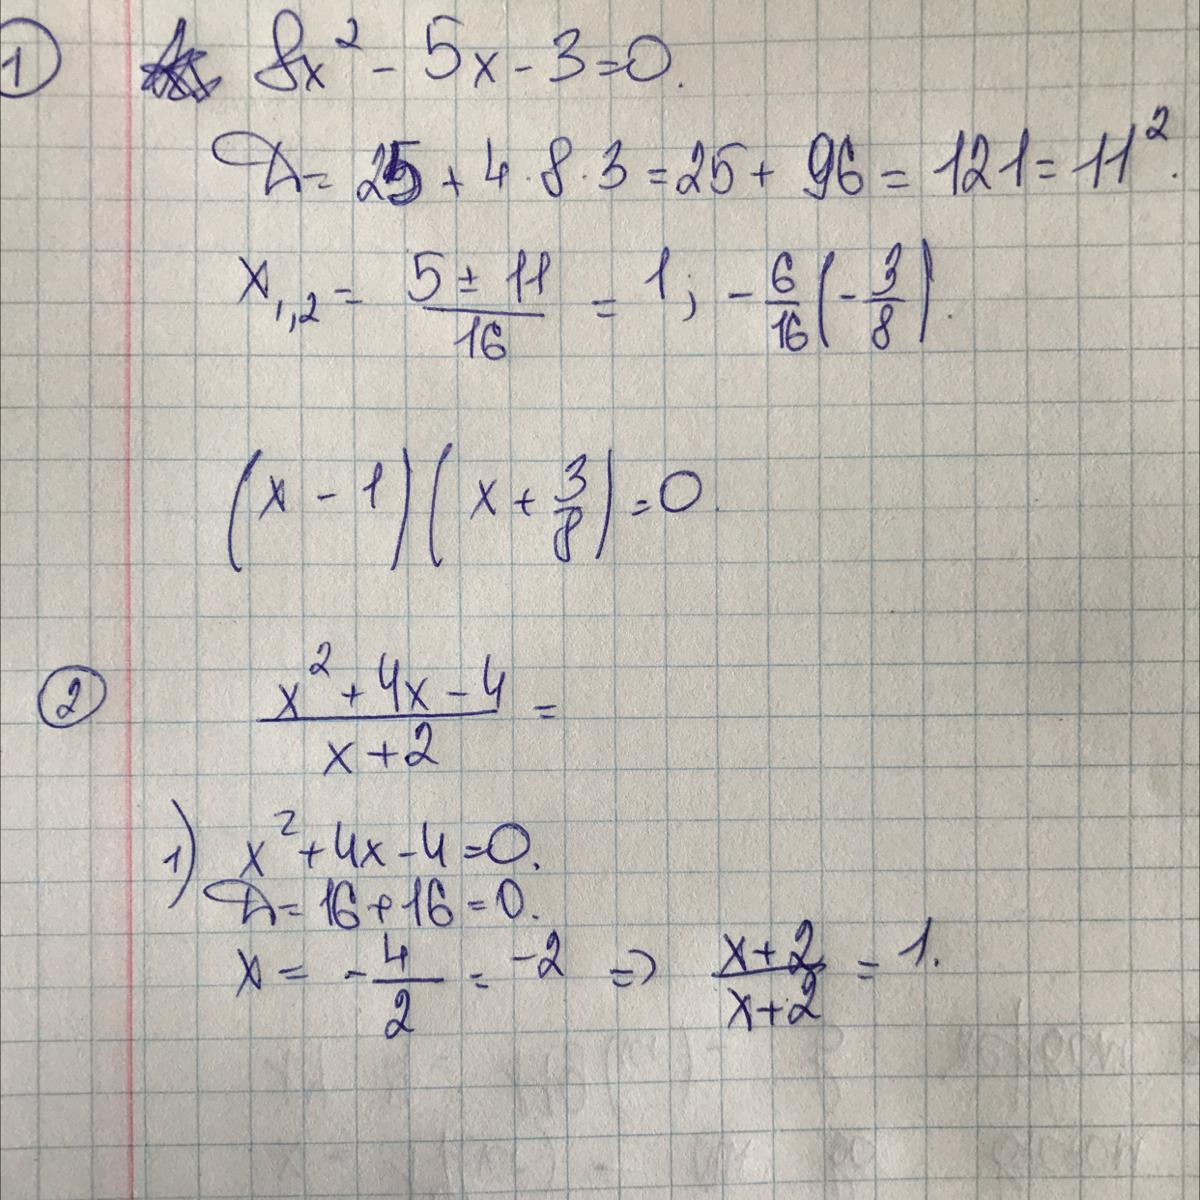 1 8x² - 5x - 3 = 0.
D = 25 + 4·8·3 = 25 + 96 = 121 = 11².
x₁,₂ = (5 ± 11)/16 = 1; -6/16 (-3/8).
(x - 1)(x + 3/8) = 0.
2 (x² + 4x - 4)/(x + 2) =
1) x² + 4x - 4 = 0.
D = 16 + 16 = 0.
x = -4/2 = -2 => (x + 2)/(x + 2) = 1.